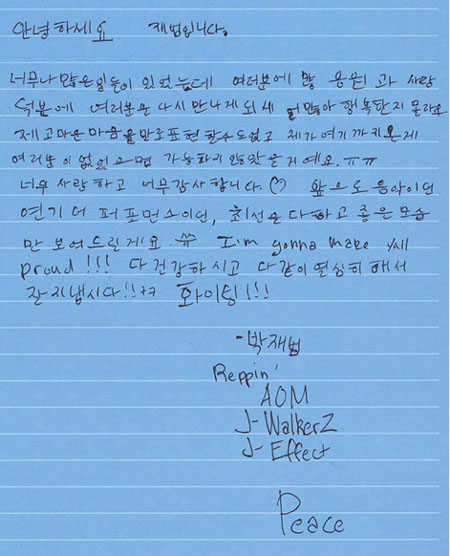 안녕하세요 재범입니다.
너무나 많은일들이 있었는데 여러분에 많 응원과 사랑
덕분에 여러분을 다시 만나게 되네 얼마나 행복한지 몰라요
제 고마운 마음을 말로표현 할수도없고 제가 여기까지 온게
여러분이 없었으면 가능하지 않았을거예요. ㅠㅠ
너무 사랑하고 너무감사합니다. ♡ 앞으로 음악이던
연기 더 퍼포먼스이던, 최선을 다하고 좋은 모습
만 보여드린게요. ^^ I'm gonna make yall
proud!!! 다 건강하시고 다같이 열심히 해서
잘 지냅시다!! ㅋㅋ 화이팅!!!
-박재범
Reppin'
AOM
J-WalkerZ
J-Effect
Peace